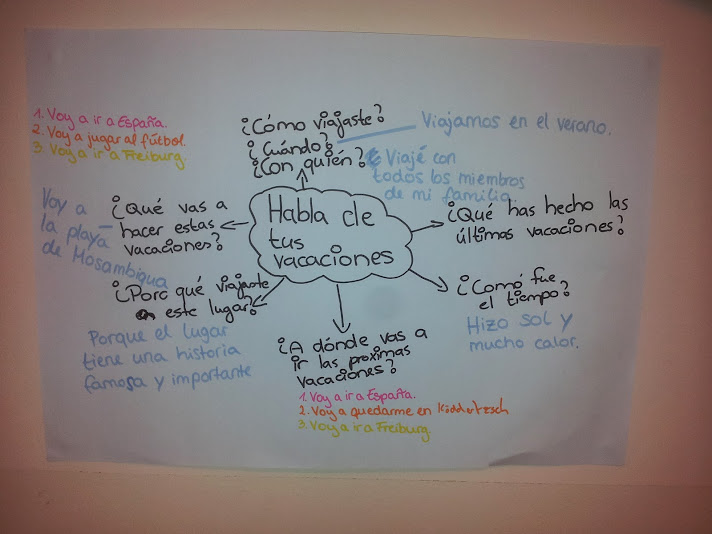 1. Voy a ir a España.
2. Voy a jugar al fútbol.
3. Voy a ir a Freiburg.
¿Cómo viajaste?
¿Cuándo?
¿Con quién?
Viajamos en el verano.
Viajé con
todos los miembros
de mi familia
Voy a
la playa
de Mosambiqua
¿Qué vas a
hacer estas
vacaciones?
Habla de
tus
vacaciones
¿Qué has hecho las
últimas vacaciones?
¿Porqué viajaste
este lugar?
Porque el lugar
tiene una historia
famosa y importante
¿Comó fue
el tiempo?
Hizo sol y
mucho calor.
¿A dónde vas a
ir las proximas
vacaciones?
1. Voy a ir a España.
2. Voy a quedarme en
3. Voy a ir a Freiburg.